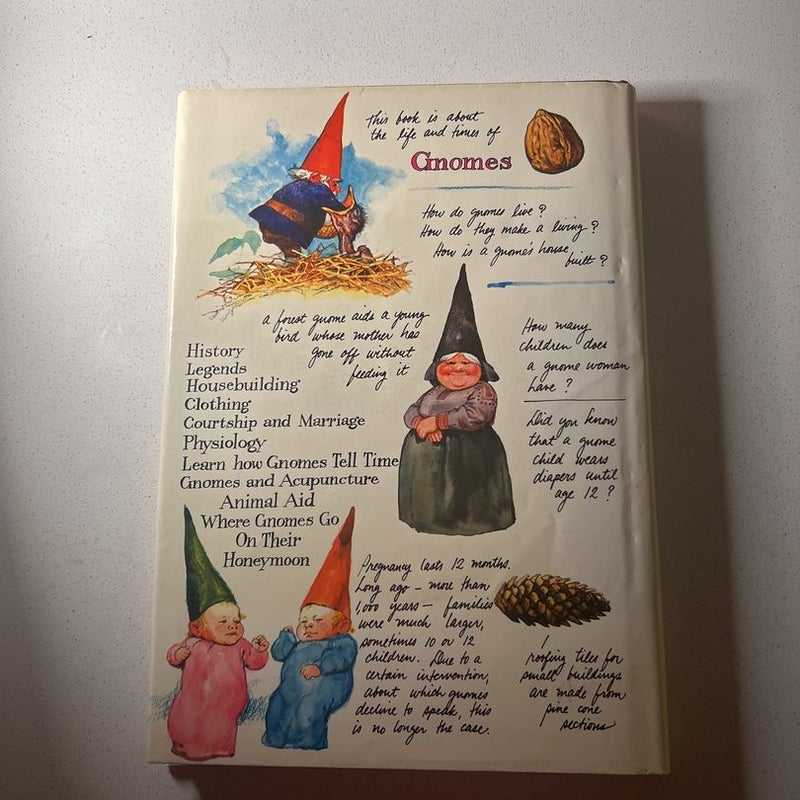 This book is about
the life and times of
Gnomes
How do gnomes live?
How do they make a living?
How is a gnome's house
built?
a forest gnome aids a young
bird whose mother has
gone off without
feeding it
History
Legends
Housebuilding
Clothing
Courtship and Marriage
Physiology
Learn how Gnomes Tell Time
Gnomes and Acupuncture
Animal Aid
Where Gnomes Go
On Their
Honeymoon
How many
children does
a gnome woman
have?
Did you know
that a gnome
child wears
diapers until
age 12?
Pregnancy lasts 12 months.
Long ago – more than
1,000 years – families
were much larger,
sometimes 10 or 12
children. Due to a
certain intervention,
about which gnomes
decline to speak, this
is no longer the case.
roofing tiles for
small buildings
are made from
pine cone
sections